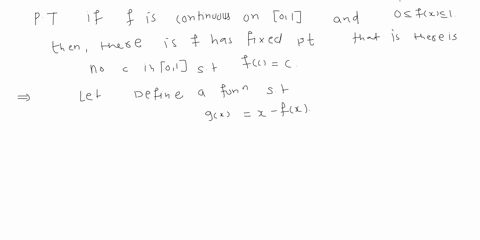 P.T If f is continuous on [0,1] and 0≤f(x)≤1.
then, there is f has fixed pt that is there is
no c in [0,1] s t f(c) = c.
⇒ Let Define a funⁿ s t
g(x) = x - f(x).